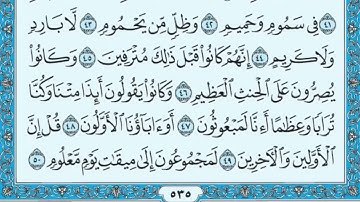 ٤١ فِي سَمُومٍ وَحَمِيمٍ ٤٢ وَظِلٍّ مِّن يَحْمُومٍ ٤٣ لَّا بَارِدٍ
وَلَا كَرِيمٍ ٤٤ إِنَّهُمْ كَانُوا۟ قَبْلَ ذَٰلِكَ مُتْرَفِينَ ٤٥ وَكَانُوا۟
يُصِرُّونَ عَلَى ٱلْحِنثِ ٱلْعَظِيمِ ٤٦ وَكَانُوا۟ يَقُولُونَ أَئِذَا مِتْنَا وَكُنَّا
تُرَابًا وَعِظَٰمًا أَءِنَّا لَمَبْعُوثُونَ ٤٧ أَوَءَابَآؤُنَا ٱلْأَوَّلُونَ ٤٨ قُلْ إِنَّ
ٱلْأَوَّلِينَ وَٱلْءَاخِرِينَ ٤٩ لَمَجْمُوعُونَ إِلَىٰ مِيقَٰتِ يَوْمٍ مَّعْلُومٍ ٥٠
٥٣٥